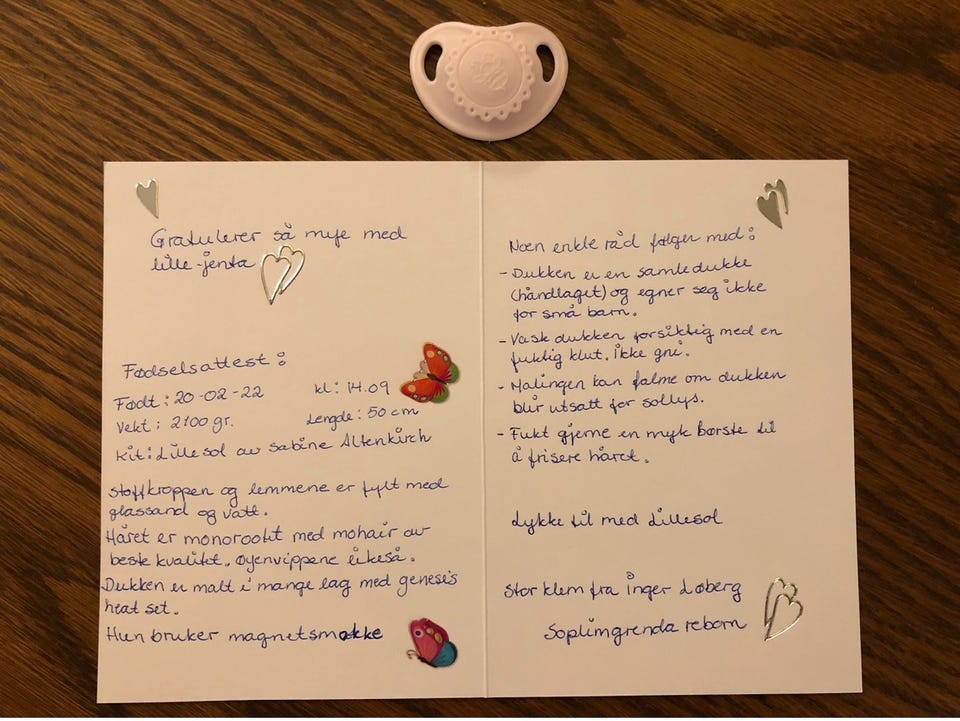 Gratulerer så mye med
lille-jenta
Fødselsattest:
Født: 20-02-22 kl: 14.09
Vekt: 2100 gr. Lengde: 50 cm
Kit: Lillesol av Sabine Altenkirch
Stoffkroppen og lemmene er fylt med
glassand og vatt.
Håret er monorootet med mohair av
beste kvalitet. Øyenvippene likeså.
Dukken er malt i mange lag med genesis
heat set.
Hun bruker magnetsmokke
Noen enkle råd følger med:
- Dukken er en samledukke
(håndlaget) og egner seg ikke
for små barn.
- Vask dukken forsiktig med en
fuktig klut. Ikke gni.
- Malingen kan falme om dukken
blir utsatt for sollys.
- Fukt gjerne en myk børste til
å frisere håret.
Lykke til med Lillesol
Stor klem fra Inger Løberg
Soplimgrenda reborn